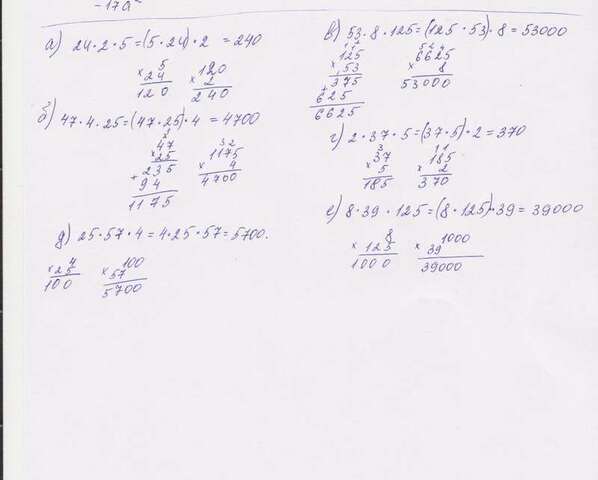 -17a
а) 24·2·5=(5·24)·2=240
5
×24
120
120
×2
240
б) 47·4·25=(47·25)·4=4700
47
×25
+235
94
1175
32
1175
×4
4700
д) 25·57·4=4·25·57=5700.
4
×25
100
100
×57
5700
в) 53·8·125=(125·53)·8=53000
11 2
125
×53
375
625
6625
52 4
6625
×8
53000
г) 2·37·5=(37·5)·2=370
3
37
×5
185
11
185
×2
370
е) 8·39·125=(8·125)·39=39000
8
×125
1000
1000
×39
39000